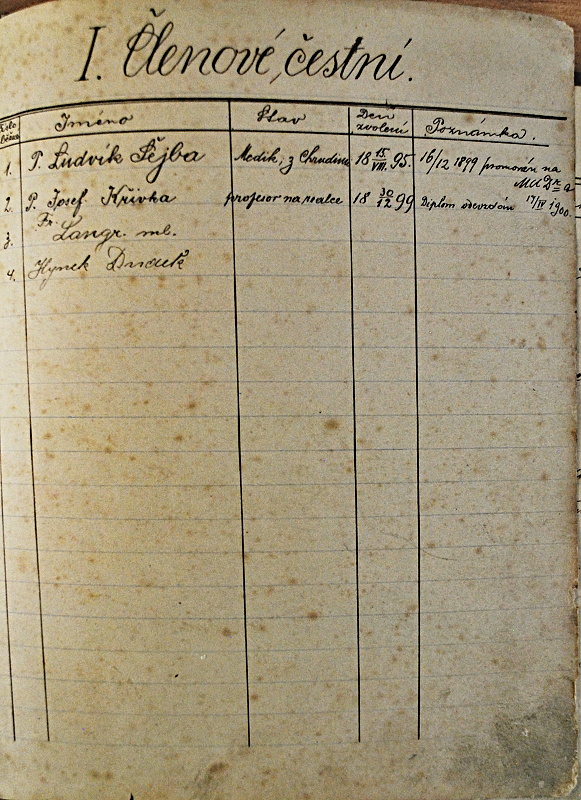 I. Členové čestní.
Číslo běžné Jméno Stav Den zvolení Poznámka.
1. P. Ludvík Šejba Medik, z Chrudimě 18 15/VIII. 95. 16/12 1899 promován na
MUDra
2. P. Josef Křivka profesor na realce 18 30/12 99 Diplom odevzdán 17/IV 1900.
3. Fr. Langr. ml.
4. Hynek Dudek